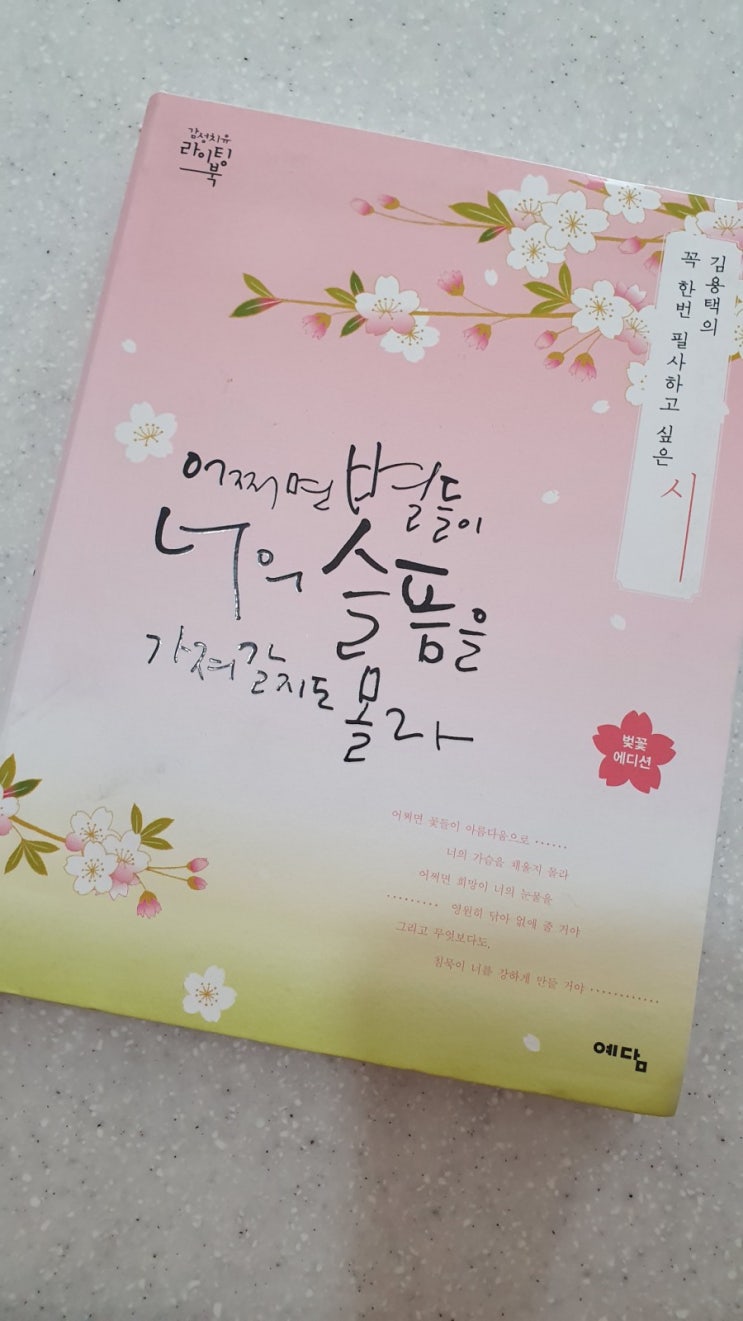 감성치유
라이팅
북
김용택의
꼭 한번 필사하고 싶은
시
어쩌면 별들이
너의 슬픔을
가져갈지도 몰라
벚꽃
에디션
어쩌면 꽃들이 아름다움으로 ······
너의 가슴을 채울지 몰라
어쩌면 희망이 너의 눈물을
········· 영원히 닦아 없애 줄 거야
그리고 무엇보다도,
침묵이 너를 강하게 만들 거야 ············
예담